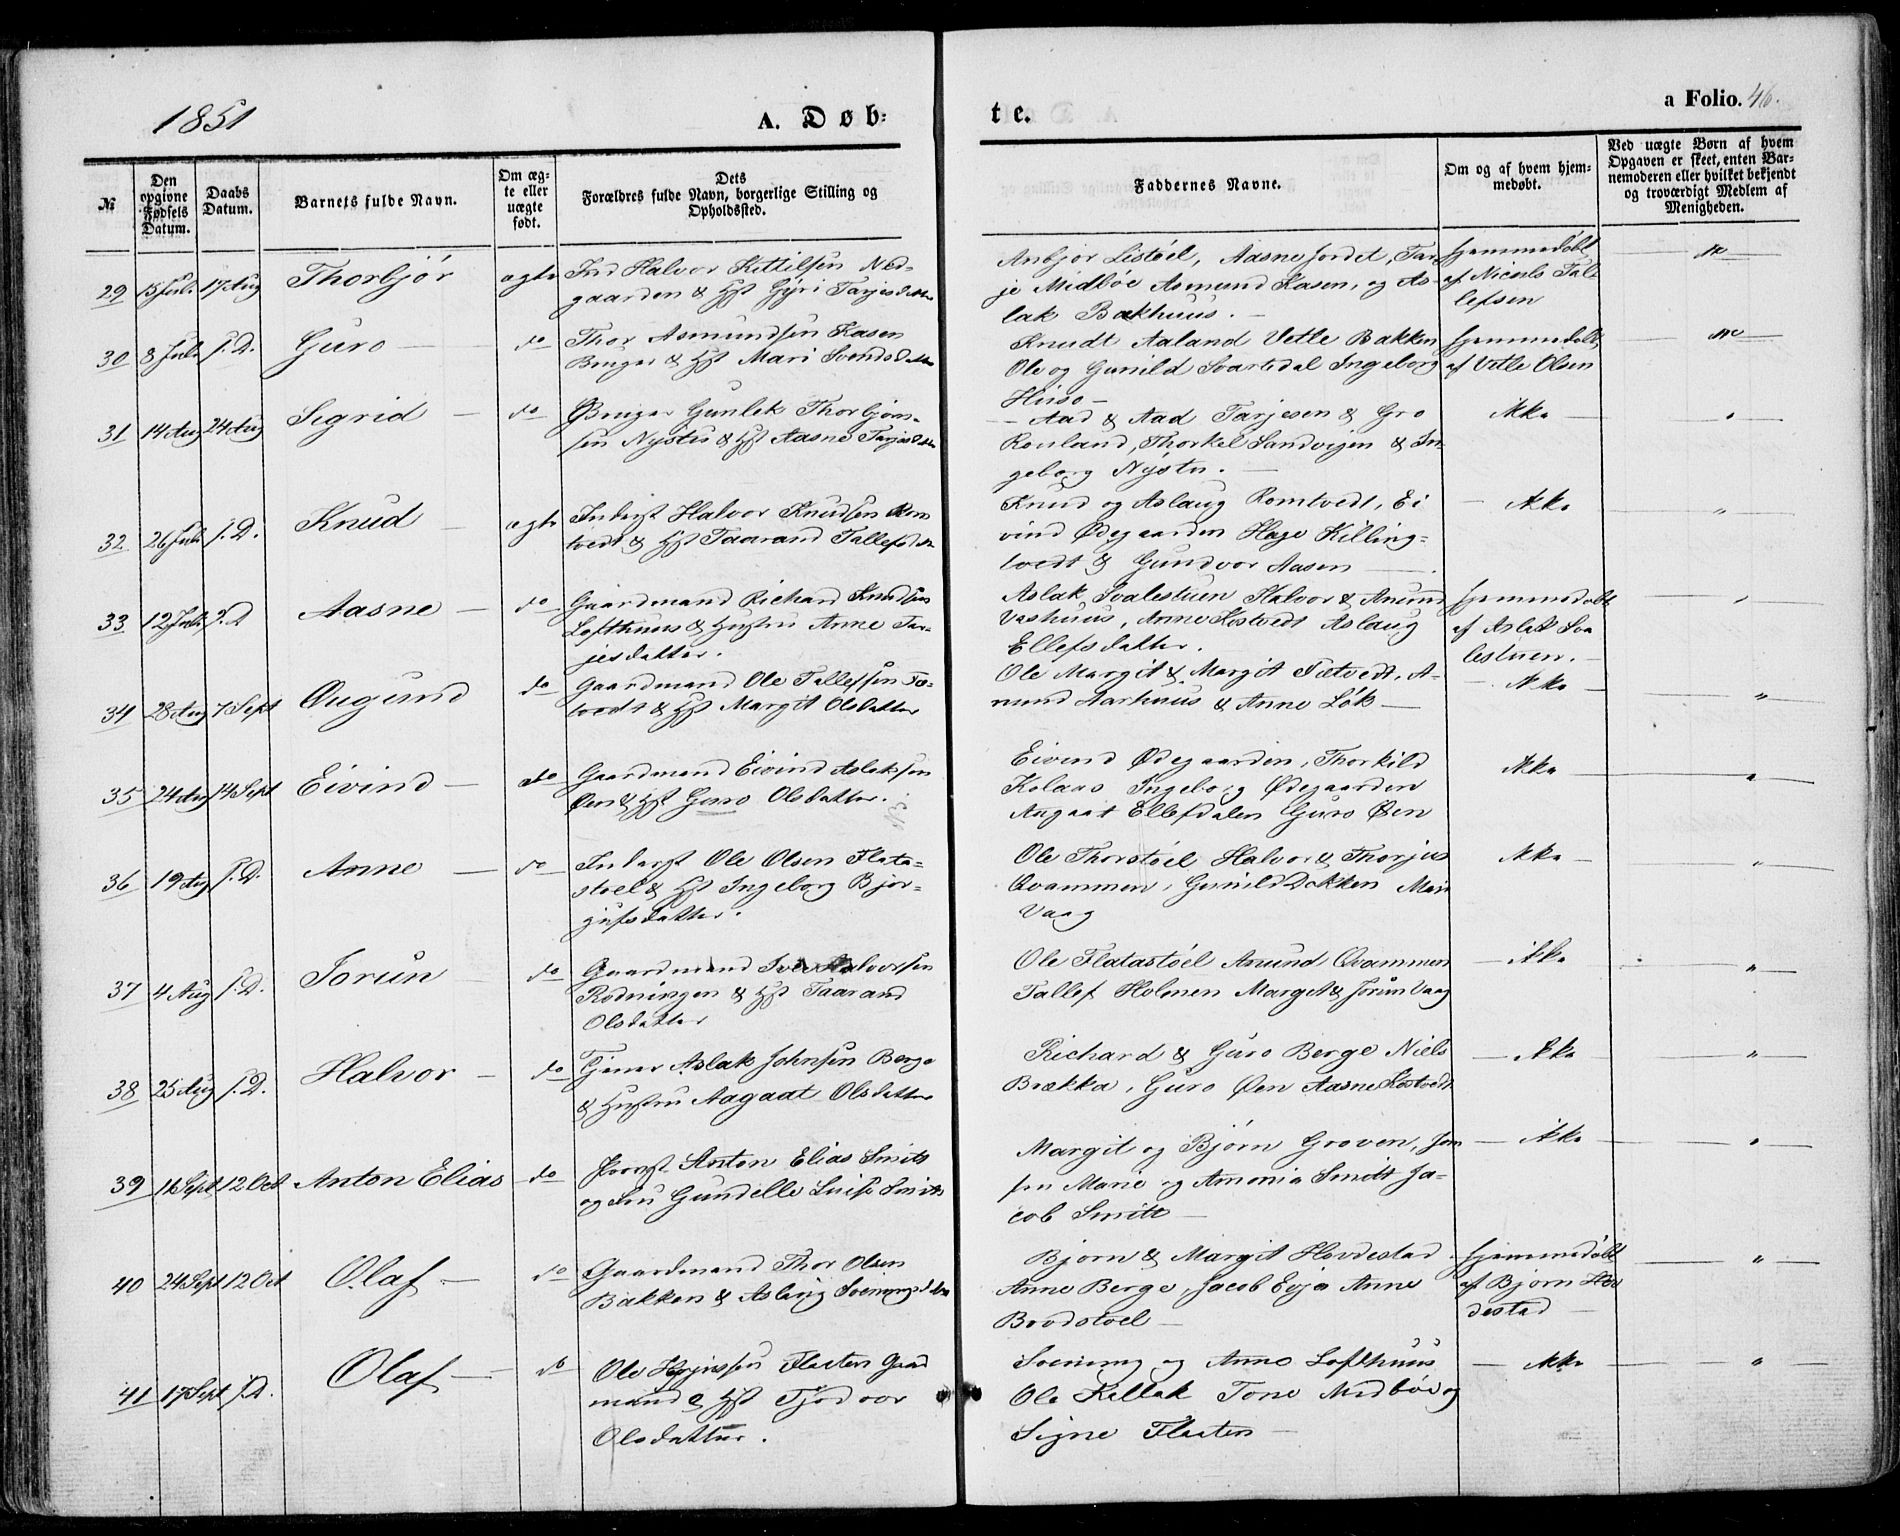 1851
A. Døb-
te.
a Folio. 46.
№
Den opgivne Fødsels Datum.
Daabs Datum.
Barnets fulde Navn.
Om ægte eller uægte født.
Dets
Forældres fulde Navn, borgerlige Stilling og
Opholdssted.
Faddernes Navne.
Om og af hvem hjemmedøbt.
Ved uægte Børn af hvem
Opgaven er skeet, enten Bar-
nemoderen eller hvilket bekjendt
og troværdigt Medlem af
Menigheden.
29 15 Juli 17 Aug Thorbjør ægte Ind Halvor Kittilsen Ned-
gaarden & Hst Gyri Tarjesdatter
Anbjør Listøel, Aasne Jordet, Tar-
je Midbøe Asmund Kasen, og As-
lak Bakhuus. -
Hjemmedøbt
af Niculs Tal-
lefsen
30 8 Juli s. D. Guro do Thor Asmundsen Kasen
Bruger & Hst Mari Svendsdatter
Knudt Aaland Vetle Bakken
Ole og Gunild Svartdal Ingeborg
Huso -
Hjemmedøbt
af Vetle Olsen
31 14 Aug 24 Aug Sigrid - do Bruger Gunlek Thorbjørn-
sen Nystu & Hst Aasne Tarjesdatter
- Aad & Aad Tarjesen & Gro
Rouland, Thorkel Sandvigen & In-
geborg Nystu. -
Ikke
32 26 Juli s. D. Knud - ægte Inderst Halvor Knudsen Rom
tvedt & Hst Taarand Tallefsdatter
Knud og Aslaug Romtvedt, Ei
vind Ødegaarden Hage Killing-
tvedt & Gundvor Aasen -
- Ikke
33 12 Juli s. D Aasne - do Gaardmand Richard Knudsen
Lofthuus & Hustru Anne Tar-
jesdatter.
Aslak Svalestuen Halvor & Anund
Vashuus, Anne Kostvedt Aslaug
Ellefsdatter.
Hjemmedøbt
af Aslak Sva
lestuen. -
34 28 Aug 7 Sept Øugund do Gaardmand Ole Tallefsen Tæ-
tvedt & Hst Margit Olsdatter
Ole Margit & Margit Tætvedt, A-
mund Aarhuus & Anne Løk -
- Ikke -
35 24 Aug 14 Sept Eivind - do Gaardmand Eivind Aslaksen
Øen & Hst Guro Olsdatter.
Eivind Ødegaarden, Thorkild
Kolaas Ingeborg Ødegaarden
Aagaat Ellefdalen Guro Øen
Ikke
36 19 Aug s. D. Anne - do Inderst Ole Olsen Flata-
støel & Hst Ingeborg Bjør-
gufsdatter.
Ole Thorstøel Halvor & Thorjus
Qvammen, Gunild Dokken Mari
Vaag
Ikke -
37 4 Aug s. D. Jorun do Gaardmand Halvorsen
Rødningen & Hst Taarand
Olsdatter
Ole Flatastøel Anund Qvammen
Tallef Holmen Marget & Jorun Vaag
- Ikke
38 25 Aug s. D. Halvor - do Tjener Aslak Johnsen Berge
& Hustru Aagaat Olsdatter
Richard & Guro Berge Niels
Brækka, Guro Øen Aasne Kostvedt
- Ikke
39 16 Sept 12 Oct Anton Elias - do Anton Elias Smitt
og Fru Gundelle Luise Smitt
Margit og Bjørn Groven, Jom
fru Marie og Amonia Smitt Ja-
cob Smitt -
- Ikke
40 24 Sept 12 Oct Olaf - do Gaardmand Thor Olsen
Bakken & Aslaug Sveinungsdatter
Bjørn & Margit Hovdestad
Anne Berge, Jacob Evja Anne
Brodstoel -
Hjemmedøbt
af Bjørn Hov
destad -
41 17 Sept s. D. Olaf - do Ole Flaten Gaard
mand & Hst Tjodvor
Olsdatter.
Sveinung og Anne Lofthuus
Ole Kallak Tone Midbøe og
Signe Flaten -
- Ikke